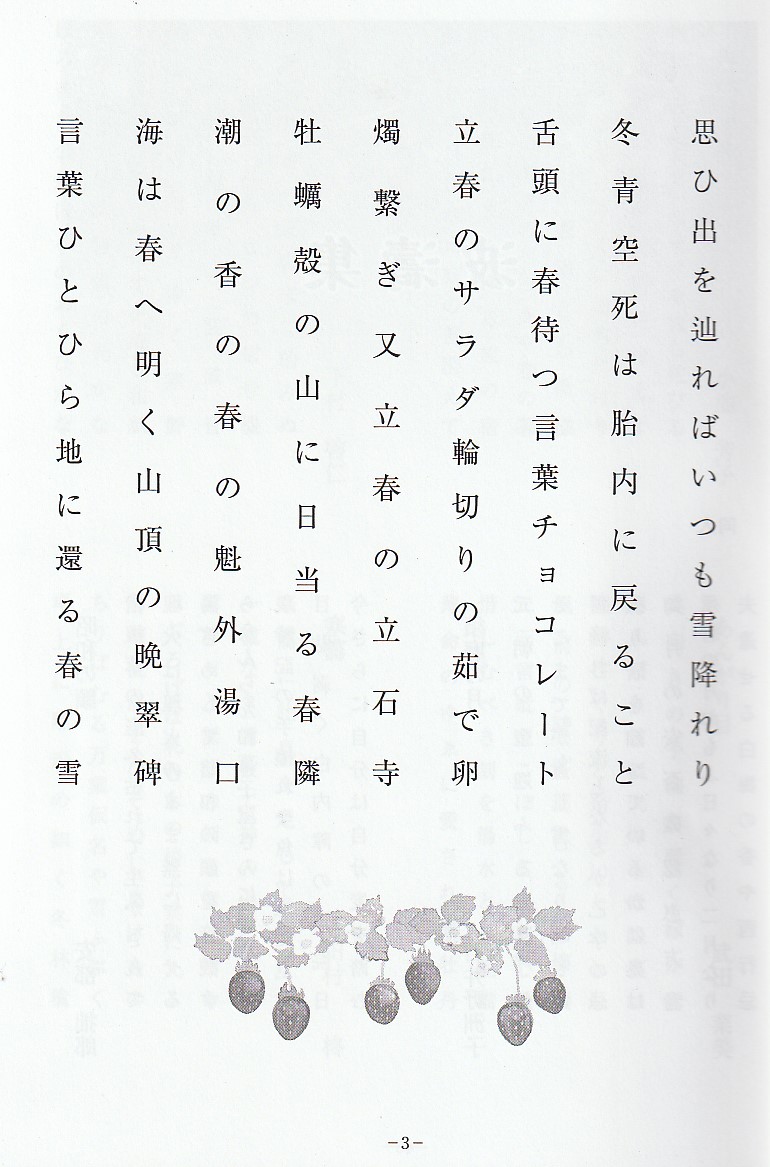 思ひ出を辿ればいつも雪降れり
冬青空死は胎内に戻ること
舌頭に春待つ言葉チョコレート
立春のサラダ輪切りの茹で卵
燭繋ぎ又立春の立石寺
牡蠣殻の山に日当る春隣
潮の香の春の魁外湯口
海は春へ明く山頂の晩翠碑
言葉ひとひら地に還る春の雪
−3−